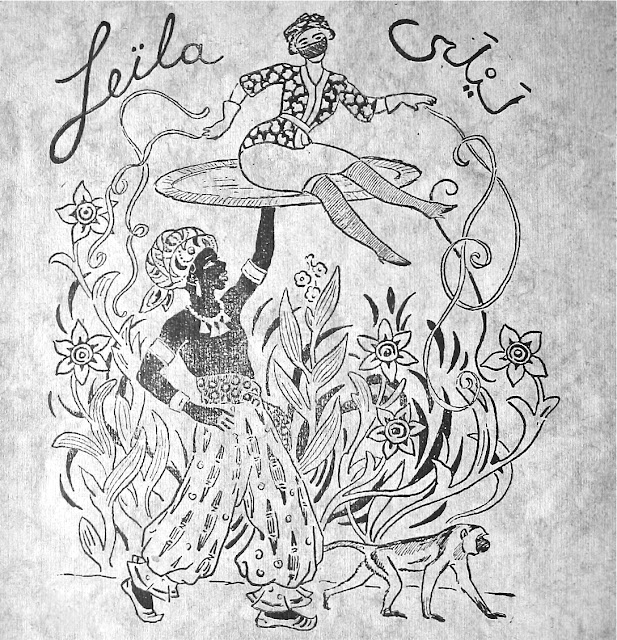 Leïla
لَيْلَى